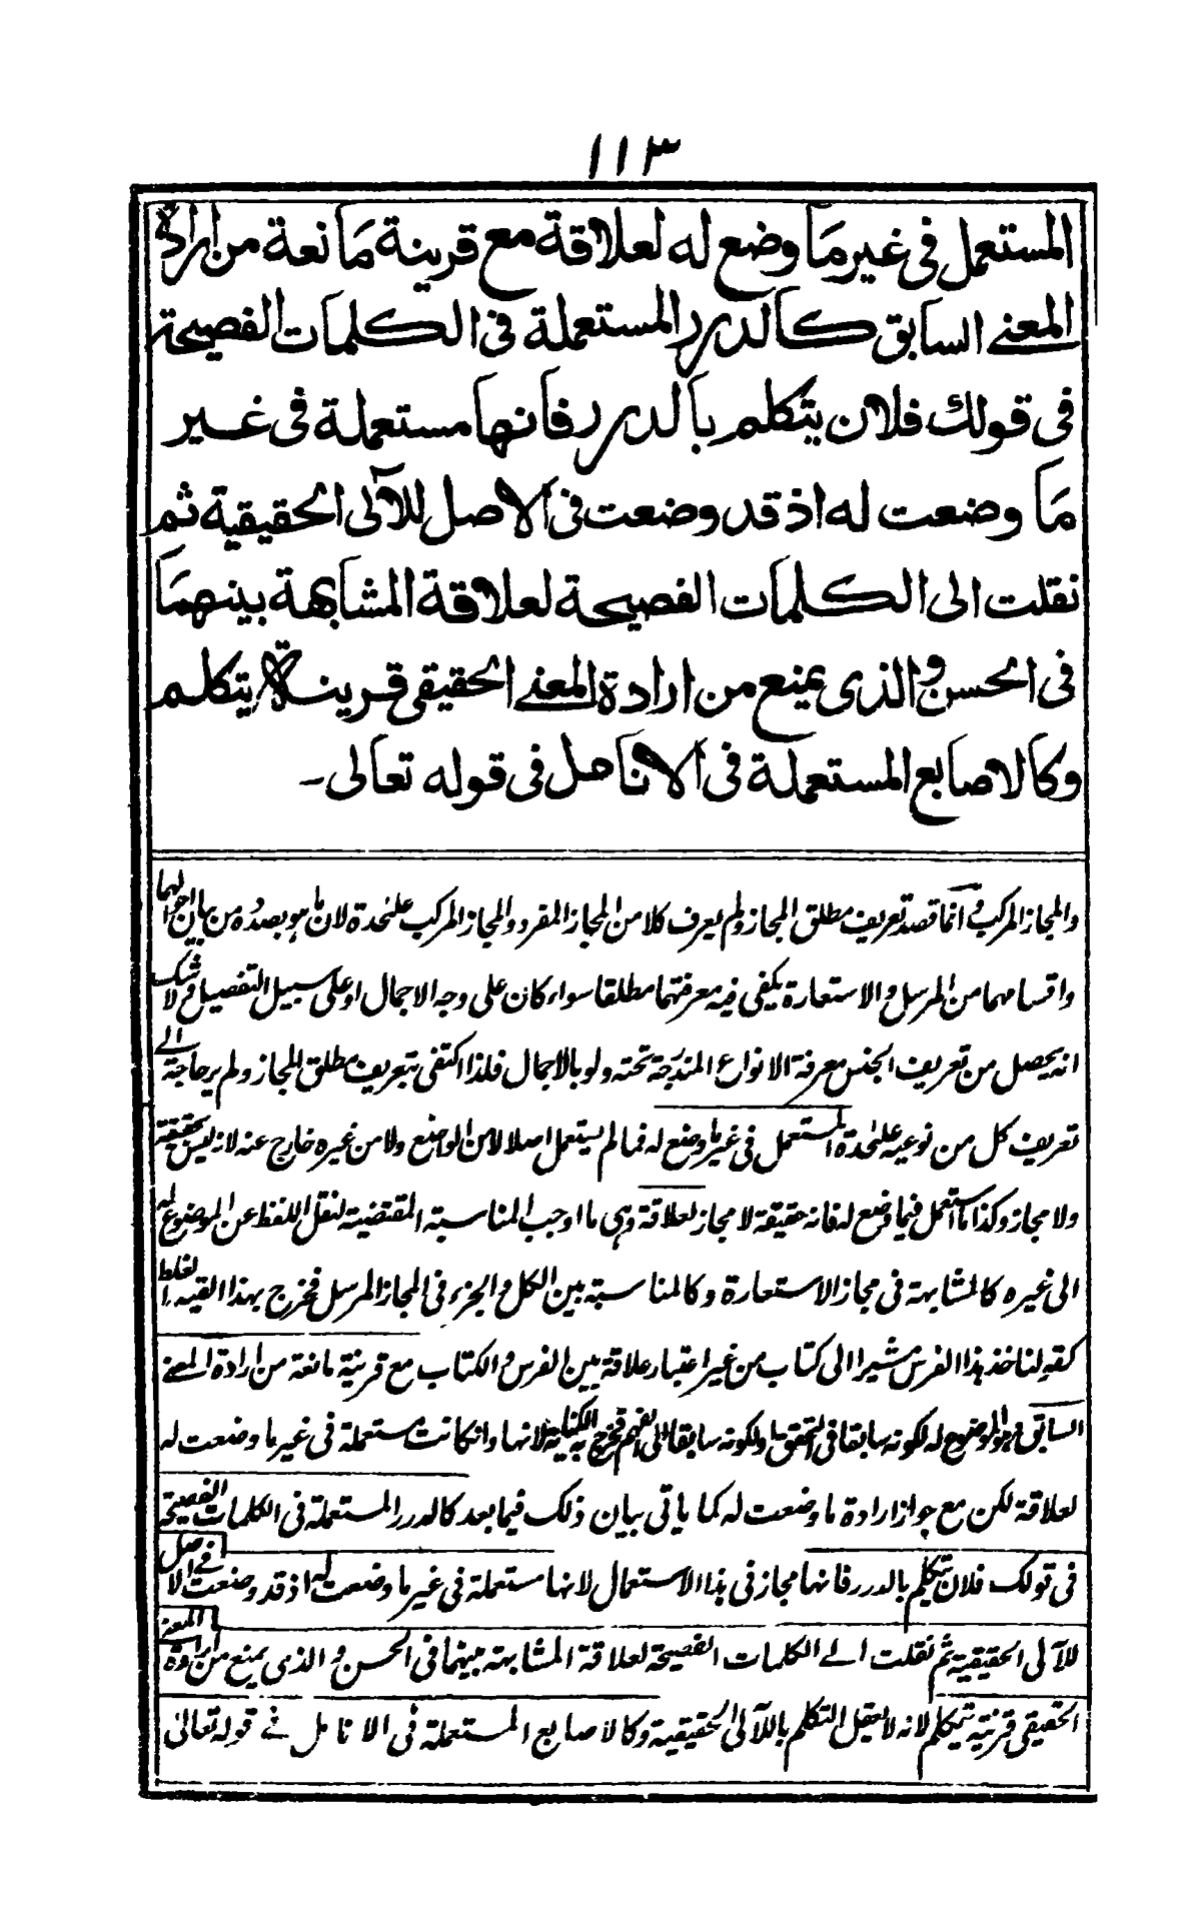 ١١٣
المستعمل فی غیر ما وضع له لعلاقة مع قرینة مانعة من ارادة
المعنے السابق کالدرر المستعملة فی الکلمات الفصیحة
فی قولك فلان یتکلم بالدرر فانها مستعملة فی غیر
ما وضعت له اذ قد وضعت فی الاصل للآلی الحقیقیة ثم
نقلت الی الکلمات الفصیحة لعلاقة المشابهة بینهما
فی الحسن والذی یمنع من ارادة المعنے الحقیقی قرینة یتکلم
وکالاصابع المستعملة فی الانامل فی قوله تعالی۔
والمجاز المرکب و انما قصد تعریف مطلق المجاز ولم یعرف کلا من المجاز المفرد والمجاز المرکب علٰحدة لان ما ہو بصدده من بیان اجرائهما
واقسامهما من المرسل والاستعارة یکفی فیه معرفتهما مطلقا سواء کان علی وجه الاجمال او علی سبیل التفصیل ولا شک
انه یحصل من تعریف الجنس معرفة الانواع المندرجة تحته ولو بالاجمال فلذا اکتفی بتعریف مطلق المجاز ولم یر حاجة الے
تعریف کل من نوعیه علٰحدة المستعمل فی غیر ما وضع له فما لم یستعمل اصلا لا من الواضع ولا من غیره خارج عنه لانه لیس بحقیقة
ولا مجاز وکذا ما استعمل فیما وضع له فانه حقیقة لا مجاز لعلاقة وہی ما اوجب المناسبة المقتضیة لنقل اللفظ عن الموضوع له
الی غیره کالمشابهة فی مجاز الاستعارة وکالمناسبة بین الکل والجزء فی المجاز المرسل فخرج بہذا القید الغلط
کقولنا خذ ہذا الفرس مشیرا الی کتاب من غیر اعتبار علاقة بین الفرس والکتاب مع قرینة مانعة من ارادة المعنے
السابق وہو الموضوع له لکونه سابقا فی التحقق او لکونه سابقا الی الفهم فخرج به الکنایة لانها وان کانت مستعملة فی غیر ما وضعت له
لعلاقة لکن مع جواز ارادة ما وضعت له کما یاتی بیان ذلک فیما بعد کالدرر المستعملة فی الکلمات الفصیحة
فی قولک فلان یتکلم بالدرر فانها مجاز فی ہذا الاستعمال لانها مستعملة فی غیر ما وضعت له اذ قد وضعت فی الاصل
للآلی الحقیقیة ثم نقلت الے الکلمات الفصیحة لعلاقة المشابهة بینهما فی الحسن والذی یمنع من ارادة المعنے
الحقیقی قرینة یتکلم لانه لا یعقل التکلم باللآلی الحقیقیة وکالاصابع المستعملة فی الانامل فے قوله تعالیٰ